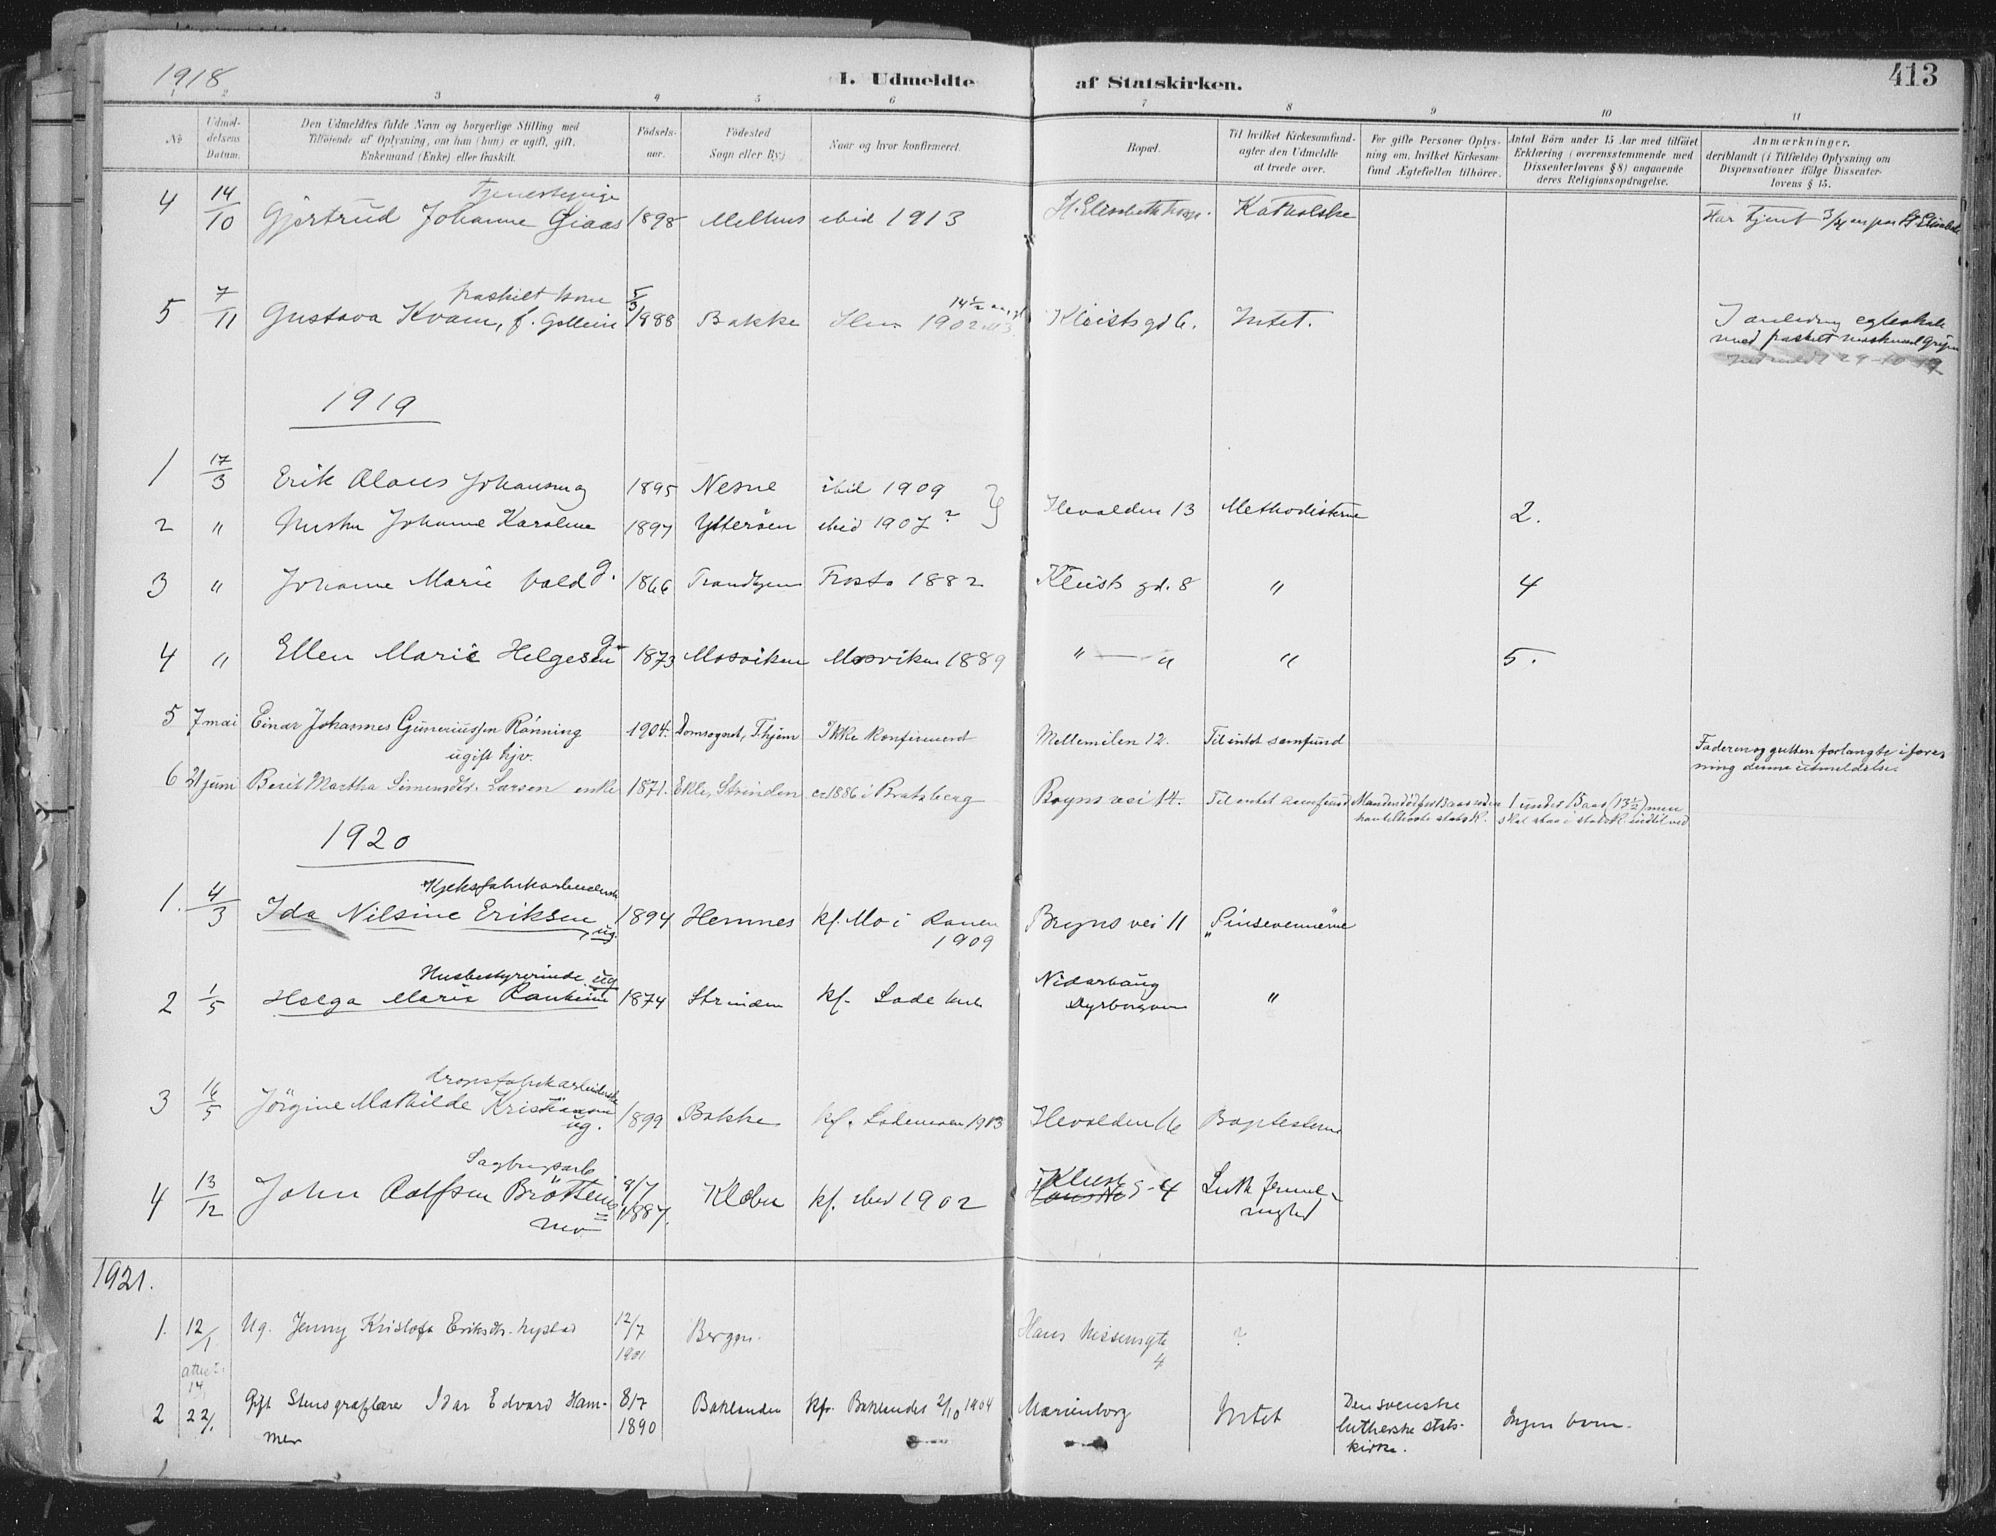 1918
I. Udmeldte af Statskirken.
413
1 2 3 4 5 6 7 8 9 10 11
No
Udmeldelsens Datum.
Den Udmeldtes fulde Navn og borgerlige Stilling med
Tilföiende af Oplysning, om han (hun) er ugift, gift,
Enkemand (Enke) eller fraskilt.
Födselsaar.
Födested
Sogn eller By.)
Naar og hvor konfirmeret.
Bopæl.
Til hvilket Kirkesamfund
agter den Udmeldte
at træde over.
For gifte Personer Oplysning om, hvilket Kirkesamfund Ægtefællen tilhörer.
Antal Börn under 15 Aar med tilföiet
Erklæring (overensstemmende med
Dissenterlovens § 8) angaaende
deres Religionsopdragelse.
Anmærkninger.
deriblandt (i Tilfælde) Oplysning om
Dispensationer ifölge Dissenterlovens § 15.
tjenestepige
4 14/10 Gjertrud Johanne Giaas 1898 Melhus ibid 1913 St. Elisabeth hosp. Katholske Har tjent 3/4 aar paa St Elisabeth
fraskilt kone
5 7/11 Gustava Kvam, f. Gollein 5/3 1888 Bakke Ilen 1902 14 1/2 Kleists gd 6. Intet. I anledning egteskab
med fraskilt
Indmeldt 29-10-19
1919
1 17/3 Erik Olaus Johansen og 1895 Nesne ibid 1909
2 " Hustru Johanne Karoline 1897 Ytterøen ibid 1907? Ilevolden 13 Methodisterne 2.
3 " Johanne Marie Vold g. 1866 Trondhjem Frosta 1882 Kleists gd. 8 " 4
4 " Ellen Marie Helgesen g. 1873 Mosviken Mosviken 1889 " — " " 5.
5 7 mai Einar Johannes Guneriussen Rönning 1904. Domsognet, T.hjem Ikke konfirmeret Mellemilen 12. Til intet samfund Faderen og gutten forlangte i forening denne utmeldelse.
ugift hjv.
6 21 juni Berit Martha Simonsdtr. Larsen enke 1871. Ekle, Strinden ca 1886 i Bratsberg Bryns vei 14. Til intet samfund Manden död for 13 aar siden
han tilhørte statsk. 1 under 15 aar (13 1/2) men
skal staa i statsk. indtil ved
1920
Kjeksfabrikarbeiderske
1. 4/3 Ida Nilsine Eriksen ug. 1894 Hemnes kf. Mo i Ranen
1909 Bryns vei 11 "Pinsevennerne
Husbestyrerinde ug
2 1/5 Helga Marie Ranheim 1874 Strinden kf. Lade kirk Nidarhaug "
dropsfabrikarbeiderske
3 16/5 Jörgine Mathilde Kristiansen ug. 1899 Bakke kf. Lademoen 1913 Ilevolden 16 Baptisterne
Sagbrugsarb
4 13/12 John Rolfsen Bröttem 9/7 1887. Klæbu kf. ibid 1902 Kleists g-4 Luth.
1921.
1. 12/1 Ug. Jenny Kristofa Eriksdtr. Nystad 12/7 1901 Bergen. Hans Nissensgte 4 ?
attest 14/
2 22/1 Gift Stenograflærer Idar Edvard Hammer 8/7 1890 Baklandet kfr. Baklandet 2/10 1904 Marienborg Intet Den svenske
lutherske statskirke. Ingen barn.